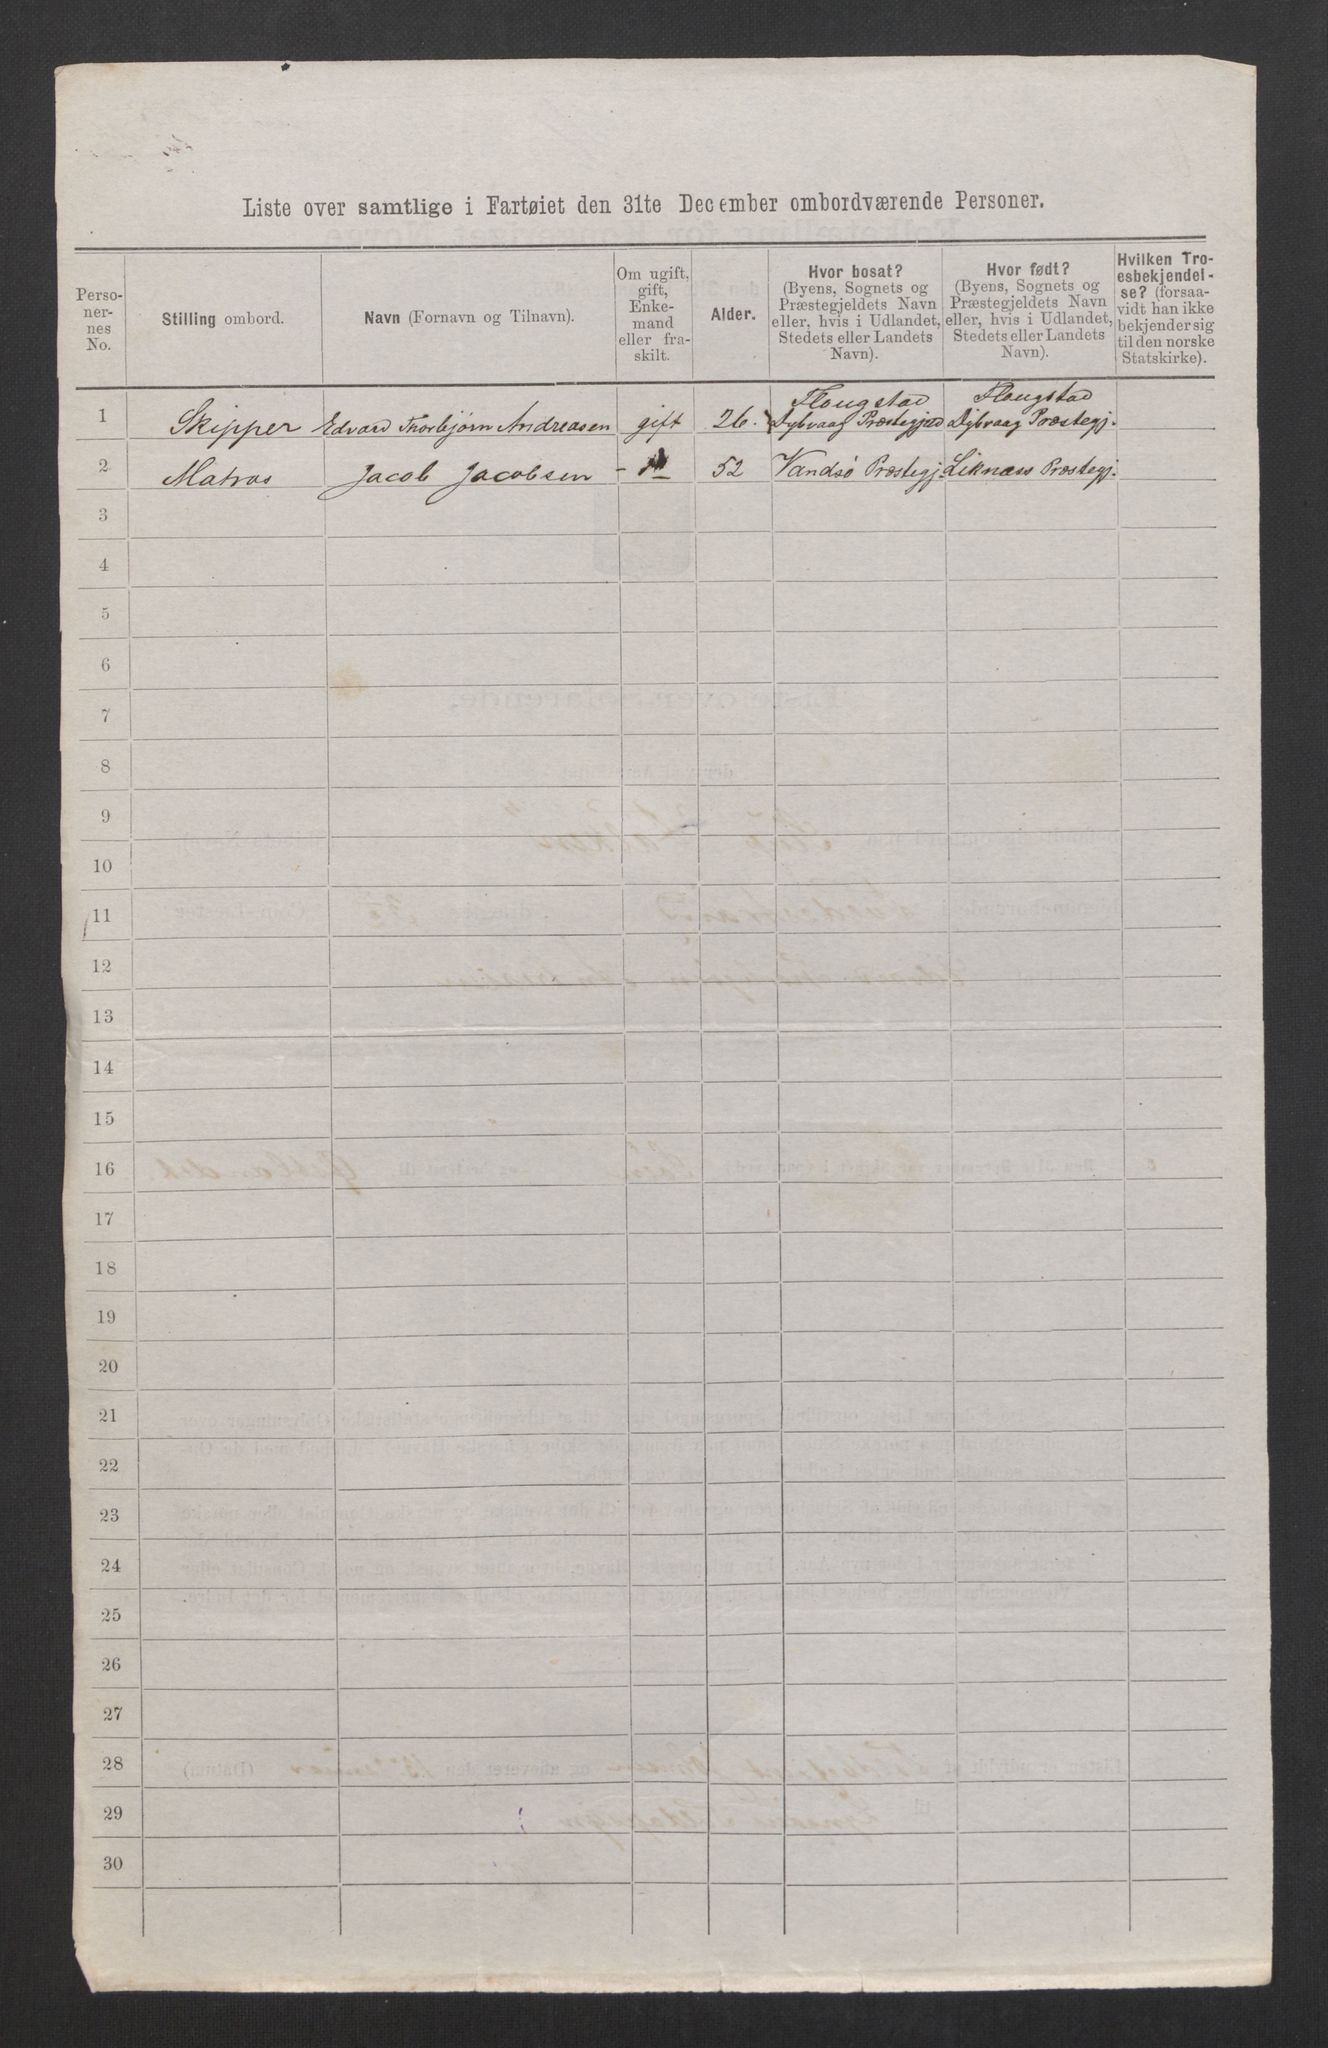 Liste over samtlige i Fartøiet den 31te December ombordværende Personer.
Perso-
ner-
nes
No.
Stilling ombord.
Navn (Fornavn og Tilnavn).
Om ugift,
gift,
Enke-
mand
eller fra-
skilt.
Alder.
Hvor bosat?
(Byens, Sognets og
Præstegjeldets Navn
eller, hvis i Udlandet,
Stedets eller Landets
Navn).
Hvor født?
(Byens, Sognets og
Præstegjeldets Navn
eller, hvis i Udlandet,
Stedets eller Landets
Navn).
Hvilken Tro-
esbekjendel-
se? (forsaa-
vidt han ikke
bekjender sig
til den norske
Statskirke).
Flougstad Flougstad
1 Skipper Edvard Thorbjørn Andreasen gift 26 Dybvaag Præstegjed Dybvaag Præstegj.
2 Matros Jacob Jacobsen 52 Vandsø Præstegj. Liknæss Præstegj.
3
4
5
6
7
8
9
10
11
12
13
14
15
16
17
18
19
20
21
22
23
24
25
26
27
28
29
30